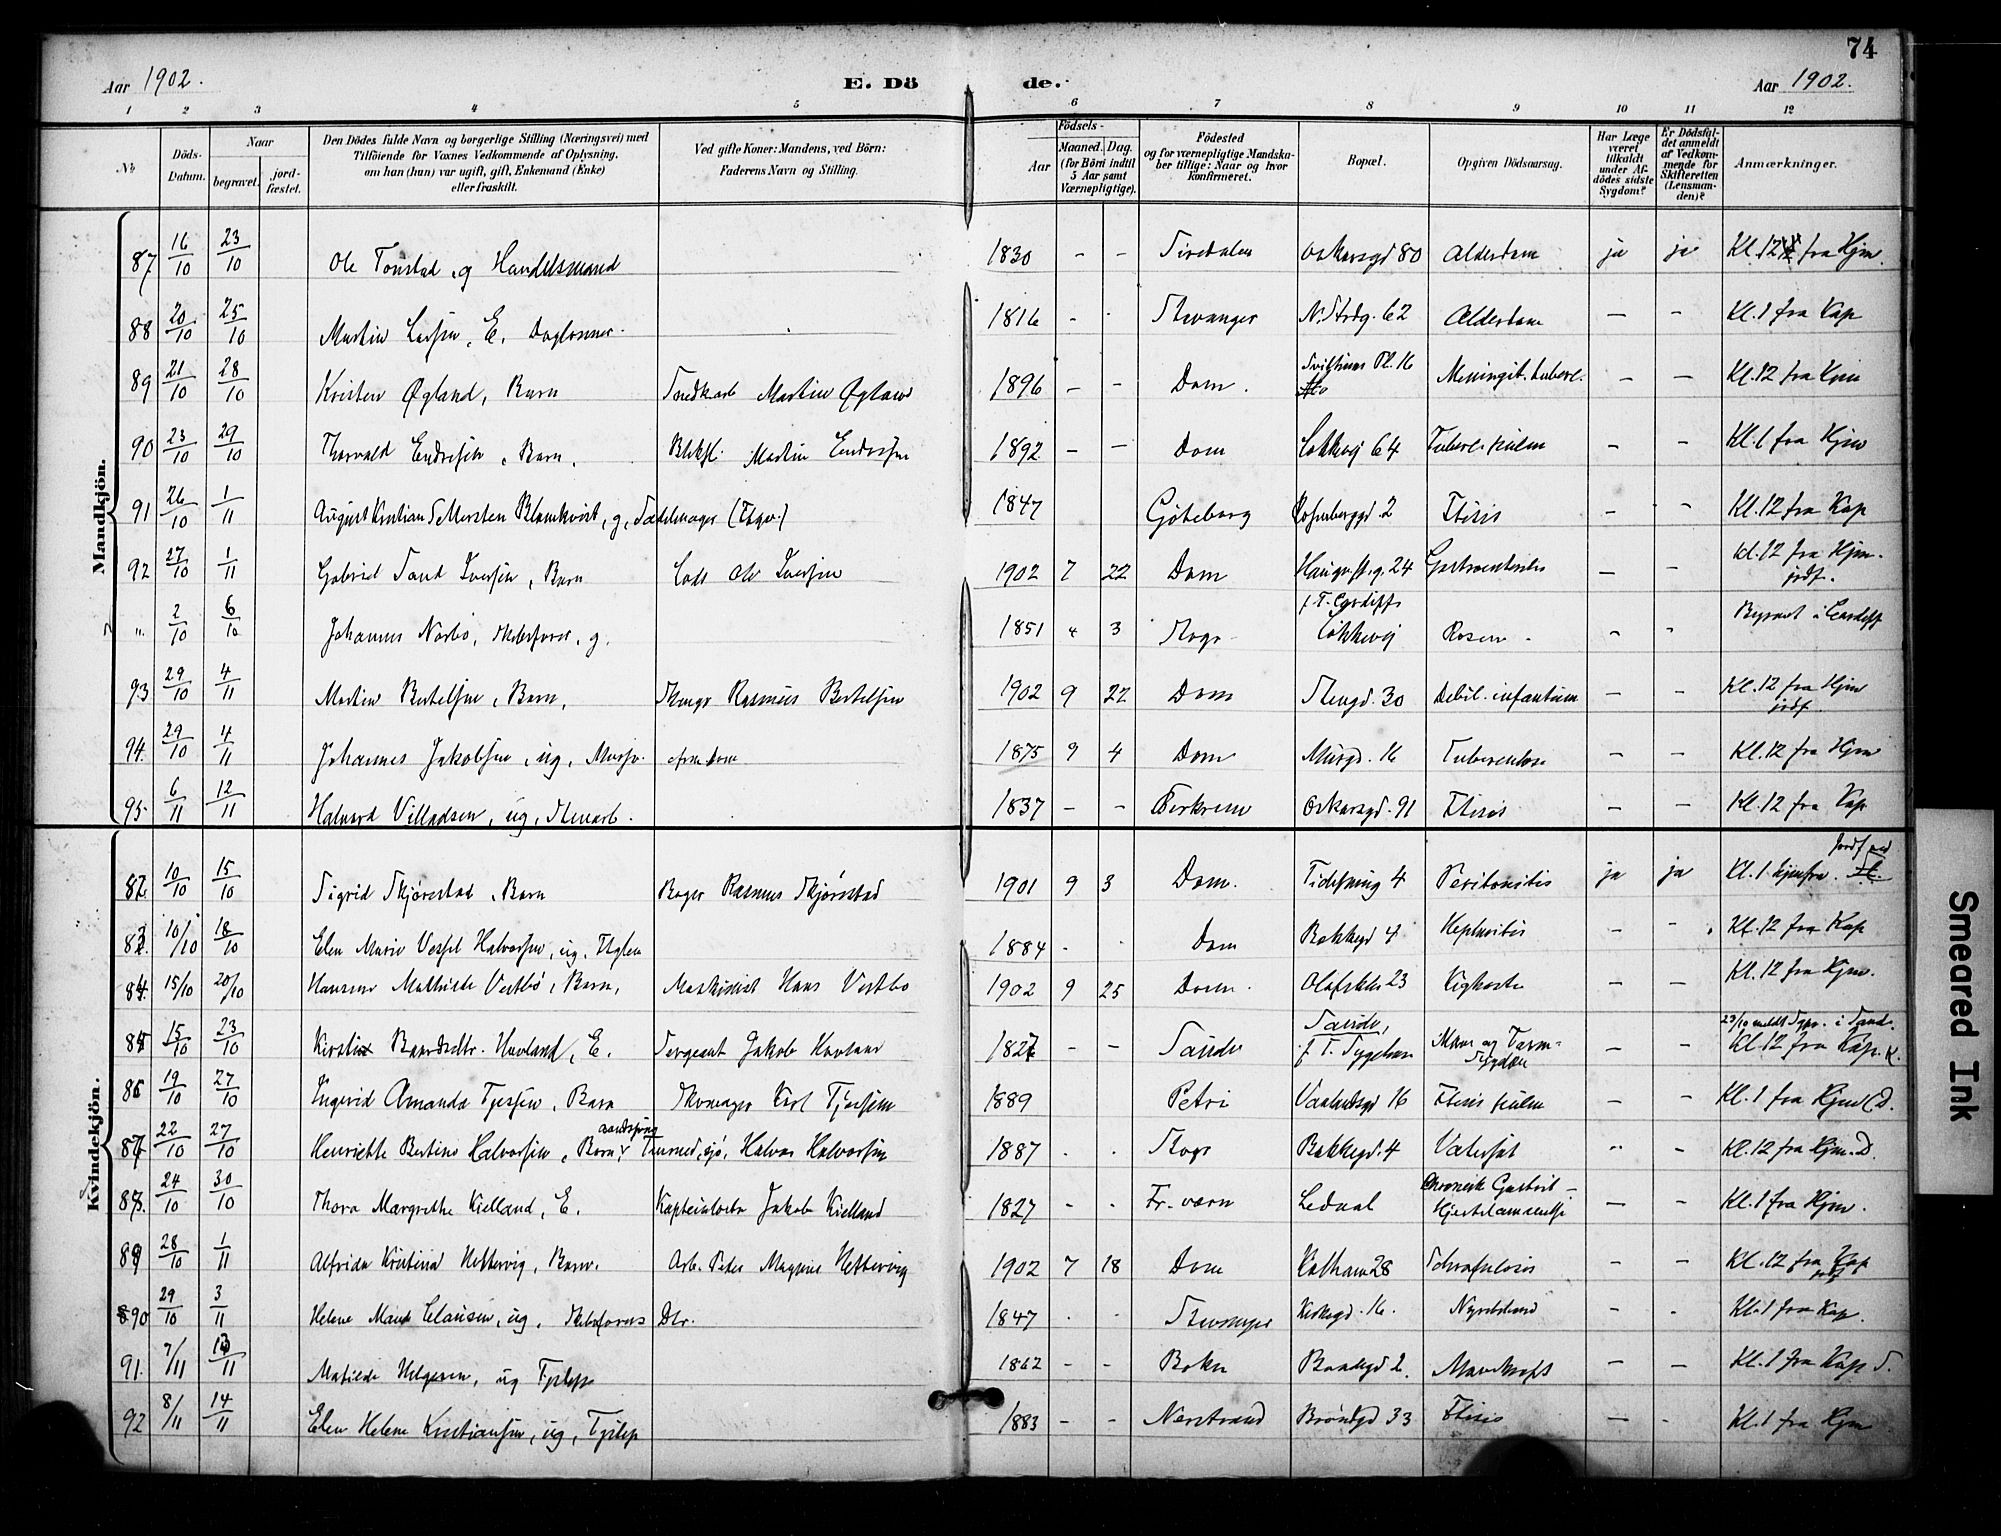 74
Aar 1902. E. Dö de. Aar 1902.
1 2 3 4 5 6 7 8 9 10 11 12
No. Döds-Datum. Naar begravet. jord-fæstet. Den Dödes fulde Navn og borgerlige Stilling (Næringsvei) med Tilföiende for Voxnes Vedkommende af Oplysning, om han (hun) var ugift, gift, Enkemand (Enke) eller fraskilt. Ved gifte Koner: Mandens, ved Börn: Faderens Navn og Stilling. Födsels- Aar Maaned. Dag. (for Börn indtil 5 Aar samt Værnepligtige). Födested og for værnepligtige Mandskaber tillige: Naar og hvor konfirmeret. Bopæl. Opgiven Dödsaarsag. Har Læge været tilkaldt under Afdödes sidste Sygdom? Er Dödsfaldet anmeldt af Vedkommende for Skifteretten (Lensmanden)? Anmærkninger.
Mandkjön.
87 16/10 23/10 Ole Tonstad, g Handelsmand 1830 - - Siredalen Oskarsgd 80 Alderdom ja ja Kl. 12 fra Hjm.
88 20/10 25/10 Martin Larsen, E. Daglonner. 1816 - - Stavanger N. Strdg. 62 Alderdom - - Kl. 1 fra Kap
89 21/10 28/10 Kristen Øgland, Barn Snedkarb Martin Øgland 1896 - - Dom. Svithuns Pl. 16 Meningit. tuberc. - - Kl. 12 fra
90 23/10 29/10 Thorvald Endresen, Barn. Blikksl. Martin Endresen 1892 - - Dom Løkkevej 64 Tuberc. pulm - - Kl. 1 fra Hjm
91 26/10 1/11 August Kristian Blomkvist, g, Sadelmager 1847 Göteborg Rosenberggd. 2 Ftisis - - Kl. 12 fra Kap
92 27/10 1/11 Gabriel Sand Iversen, Barn Lods Ole Iversen 1902 7 22 Dom Haugesst. g. 24 Gastroenteritis - - Kl. 12 fra Hjm. jrdf.
" 2/10 6/10 Johannes Norbø, Skibsfører, g. 1851 4 3 Skogr f. T. Cardiff Løkkevej Rosen - - Begravet i Cardiff
93 29/10 4/11 Martin Bertelsen, Barn, Rasmus Bertelsen 1902 9 22 Dom Stengd. 30 Debil. infantium - - Kl. 12 fra Hjm jrdf.
94. 29/10 4/11 Johannes Jakobsen, ug, 1875 9 4 Dom Murgd. 16 Tuberculose - - Kl. 12 fra Hjm
95. 6/11 12/11 Halvard Villadsen, ug, Stenarb. 1837 - - Bjerkrem Oskarsgd. 91 Ftisis - - Kl. 12 fra Kap
Kvindekjön.
82 10/10 15/10 Sigrid Skjørestad, Barn Bager Rasmus Skjørestad 1901 9 3 Dom. Tidesmug 4 Peritonitis ja ja Kl. 1 hjemfra. Jordf ved
83. 10/10 18/10 Elen Marie Vessel Halvorsen, ug. 1884 - - Dom Bakkegd 4 - - Kl. 12 fra Kap
84. 15/10 20/10 Hansine Mathilde Vestbø, Barn, Maskinist Hans Vestbø 1902 9 25 Dom. Olafsklev 23 Kighoste - - Kl. 12 fra Hjm.
85 15/10 23/10 Kirsti Baardsdtr. Hovland, E. Sergeant Jakob Hovland 1827 - - Saude Saude, f. T. Sygehus Mave og Tarm-Sygdom - - 23/10 meldt Spr. i Sand. Kl. 12 fra Kap. K.
86 19/10 27/10 Ingerid Amanda Tjersen, Barn Skomager Karl Tjersen 1889 Petri Vaalandsgd 16 Ftisis pulm - - Kl. 1 fra Hjem (D.
87 22/10 27/10 Henriette Bertine Halvorsen, Barn, aandssvag Tømmermd, sjö, Halvor Halvorsen 1887 - - Skogr Bakkegd. 4 Vatersot - - Kl. 12 fra Hjm. D.
88. 24/10 30/10 Thora Margrethe Kielland, E. Kapteinløitn Jakob Kielland 1827 - - Fr. værn Ledaal Chronisk Gastrit - Hjertelammelse - - Kl. 1 fra Hjm.
89 28/10 1/11 Alfride Kristine Hettervig, Barn. Arb. Peder Magnus Hettervig 1902 7 18 Dom Kalham 28 Schrofulosis - - Kl. 12 fra Kap jrdf
90 29/10 3/11 Helene Clausen, ug, Skibsførers Dtr. 1847 - Stavanger Kirkegd. 16. Nyrebetænd - - Kl. 1 fra Kap.
91. 7/11 13/11 Matilde Helgesen, ug Tjpige 1862 - - Bokn Bandegd 2. Mavekræft - - Kl. 1 fra Kap S.
92 8/11 14/11 Elen Helene Kristiansen, ug, Tjpige 1883 - - Nerstrand Brøndgd 33 Ftisis - - Kl. 1 fra Hjm
Smeared Ink